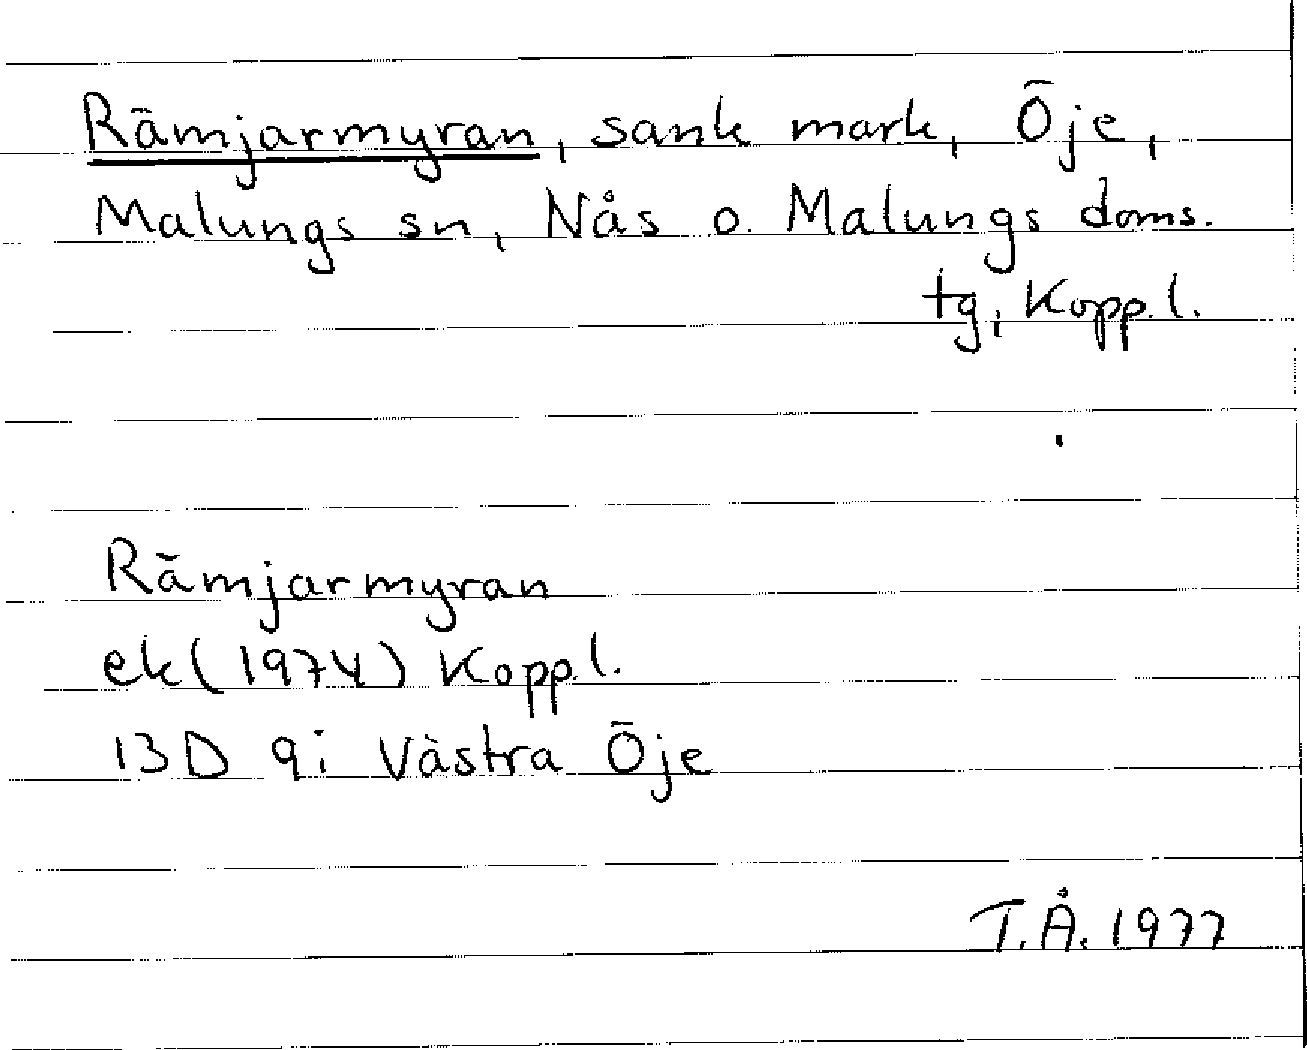 Rämjarmyran, sank mark, Öje,
Malungs sn, Nås o. Malungs doms.
tg, Kopp.l.
Rämjarmyran
ek (1974) Kopp.l.
13D 9i Västra Öje
T.Å. 1977